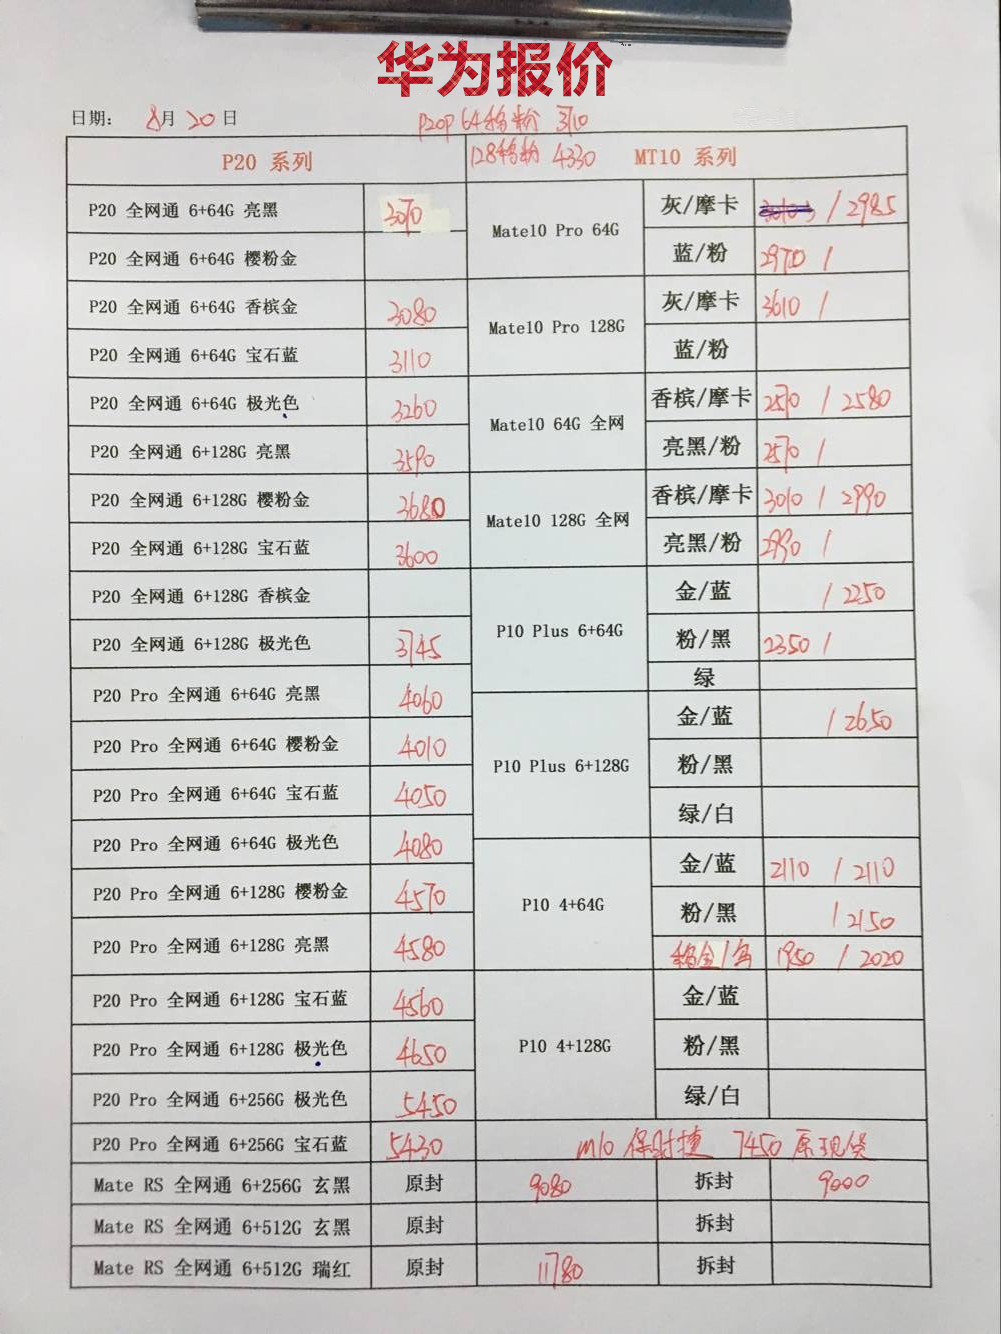 华为报价
日期： 8月 20 日
P20P 64移粉 3710
P20 系列 128移粉 4330 MT10 系列
P20 全网通 6+64G 亮黑 3070
P20 全网通 6+64G 樱粉金
P20 全网通 6+64G 香槟金 3080
P20 全网通 6+64G 宝石蓝 3110
P20 全网通 6+64G 极光色 3260
P20 全网通 6+128G 亮黑 3590
P20 全网通 6+128G 樱粉金 3680
P20 全网通 6+128G 宝石蓝 3600
P20 全网通 6+128G 香槟金
P20 全网通 6+128G 极光色 3745
P20 Pro 全网通 6+64G 亮黑 4060
P20 Pro 全网通 6+64G 樱粉金 4010
P20 Pro 全网通 6+64G 宝石蓝 4050
P20 Pro 全网通 6+64G 极光色 4080
P20 Pro 全网通 6+128G 樱粉金 4570
P20 Pro 全网通 6+128G 亮黑 4580
P20 Pro 全网通 6+128G 宝石蓝 4560
P20 Pro 全网通 6+128G 极光色 4650
P20 Pro 全网通 6+256G 极光色 5450
P20 Pro 全网通 6+256G 宝石蓝 5430
Mate10 Pro 64G
灰/摩卡 / 2985
蓝/粉 2970 /
Mate10 Pro 128G
灰/摩卡 3610 /
蓝/粉
Mate10 64G 全网
香槟/摩卡 2570 / 2580
亮黑/粉 2570 /
Mate10 128G 全网
香槟/摩卡 3010 / 2990
亮黑/粉 2990 /
P10 Plus 6+64G
金/蓝 / 2250
粉/黑 2350 /
绿
P10 Plus 6+128G
金/蓝 / 2650
粉/黑
绿/白
P10 4+64G
金/蓝 2110 / 2110
粉/黑 / 2150
移金/ 1950 / 2020
P10 4+128G
金/蓝
粉/黑
绿/白
m10 保时捷 7450 原现货
Mate RS 全网通 6+256G 玄黑 原封 9080 拆封 9000
Mate RS 全网通 6+512G 玄黑 原封 拆封
Mate RS 全网通 6+512G 瑞红 原封 11780 拆封